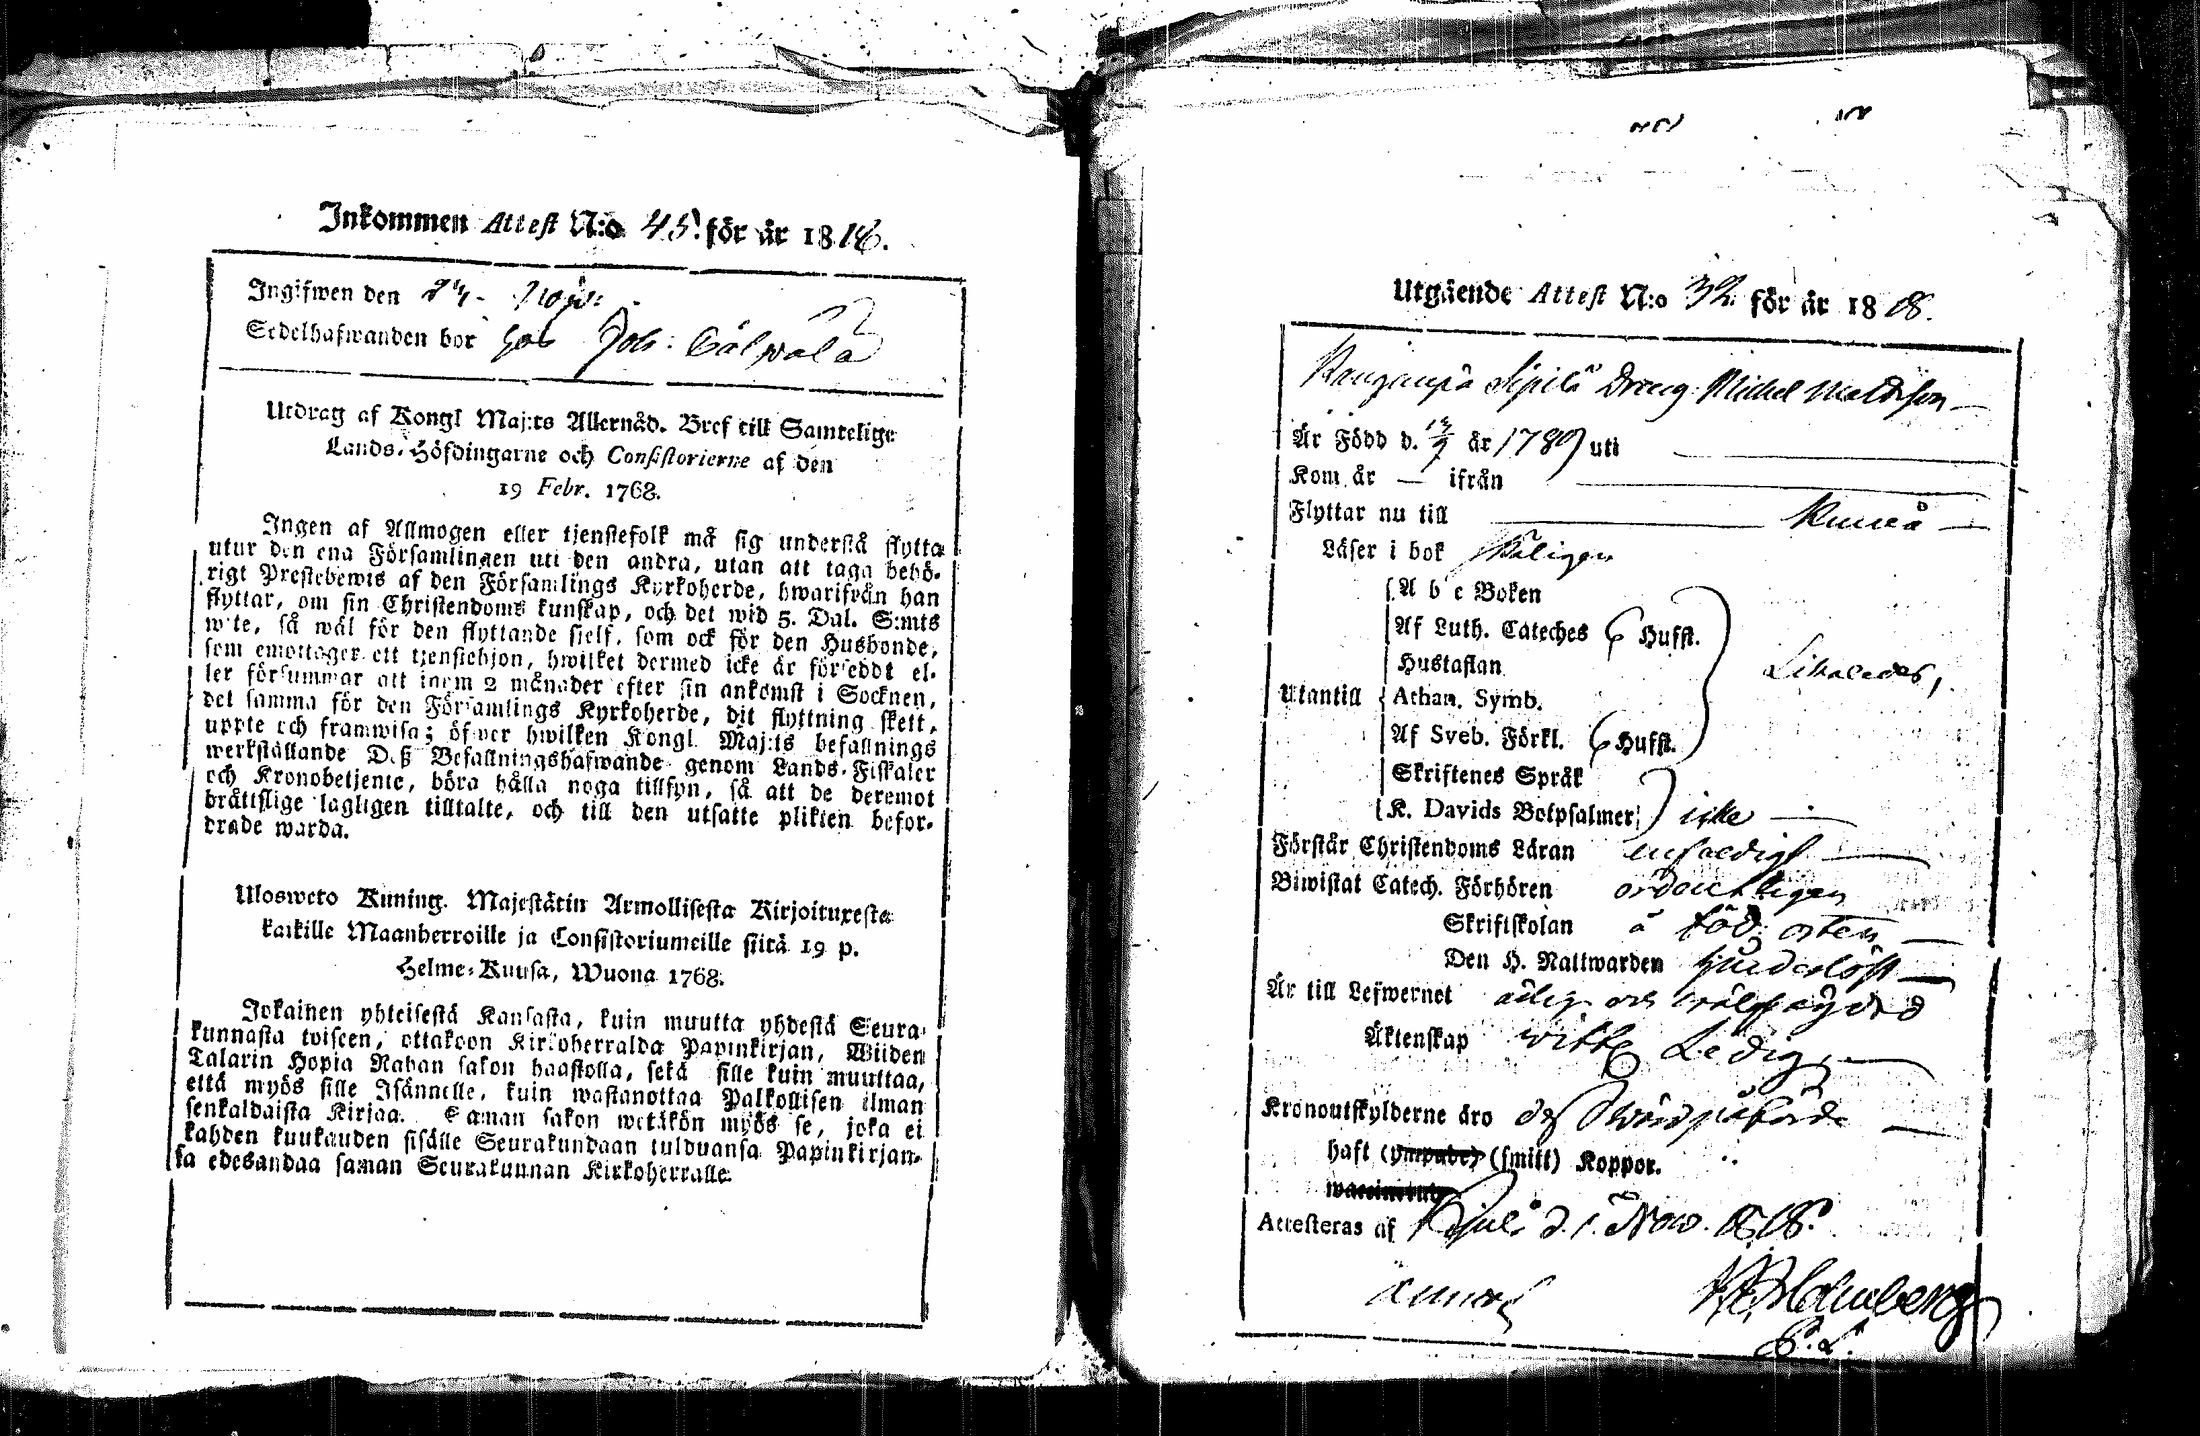 Inkommen Attest N:o 45. för år 1818.
Ingifwen den 24 Now:
Sedelhafwanden bor hos Joh: Cälwälä
Utdrag af Kongl Maj:ts Allernåd. Bref till Samtelige
Lands-Höfdingarne och Consistorierne af den
19 Febr. 1768.
Ingen af Allmogen eller tjenstefolk må sig understå flytta
utur den ena Församlingen uti den andra, utan att taga behö-
rigt Prestebewis af den Församlings Kyrkoherde, hwarifrån han
flyttar, om sin Christendoms kunskap, och det wid 5. Dal. S:mts
wite, så wäl för den flyttande sielf, som ock för den Husbonde,
som emottager ett tjenstehjon, hwilket dermed icke är förseddt el-
ler försummar att inom 2 månader efter sin ankomst i Socknen,
det samma för den Församlings Kyrkoherde, dit flyttning skett,
uppte och framwisa; öfwer hwilken Kongl. Maj:ts befallnings
werkställande Deß Befallningshafwande genom Lands-Fiskaler
och Kronobetjente, böra hålla noga tillsyn, så att de deremot
bråttslige lagligen tilltalte, och till den utsatte plikten befor-
drade warda.
Uloswето Kuning. Majestätin Armollisesta Kirjoituxesta
kaikille Maanherroille ja Consistoriumeille siitä 19 p.
Helme-Kuusa, Wuona 1768.
Jokainen yhteisestä Kansasta, kuin muutta yhdestä Seura-
kunnasta toiseen, ottakoon Kirkoherralda Papinkirjan, Wiiden
Talarin Hopia Rahan sakon haastolla, sekä sille kuin muuttaa,
että myös sille Isännelle, kuin wastanottaa Palkollisen ilman
senkaldaista Kirjaa. Saman sakon wetäkön myös se, joka ei
kahden kuukauden sisälle Seurakundaan tulduansa Papinkirjan-
sa edesandaa saman Seurakunnan Kirkoherralle.
Utgående Attest N:o 32. för år 1818.
Sipilä Dreng Michel Mattsson
Är Född d. år 1789 uti
Kom år — ifrån
Flyttar nu till
Läser i bok
A b c Boken
Af Luth. Cateches 6 Hufst.
Hustaflan
Utantill Athan. Symb.
Af Sveb. Förkl. 6 Hufst.
Skriftenes Språk
K. Davids Botpsalmer icke
Förstår Christendoms Läran enfaldigt
Biwistat Catech. Förhören ordentligen
Skriftskolan å föd. orten
Den H. Nattwarden
Är till Lefwernet ärlig och wälfrägdad
Äktenskap witt. Ledig
Kronoutskylderne äro
haft (ympade) (smitt) Koppor.
waccinerade
Attesteras af d. 1 Now. 1818.
Holmberg